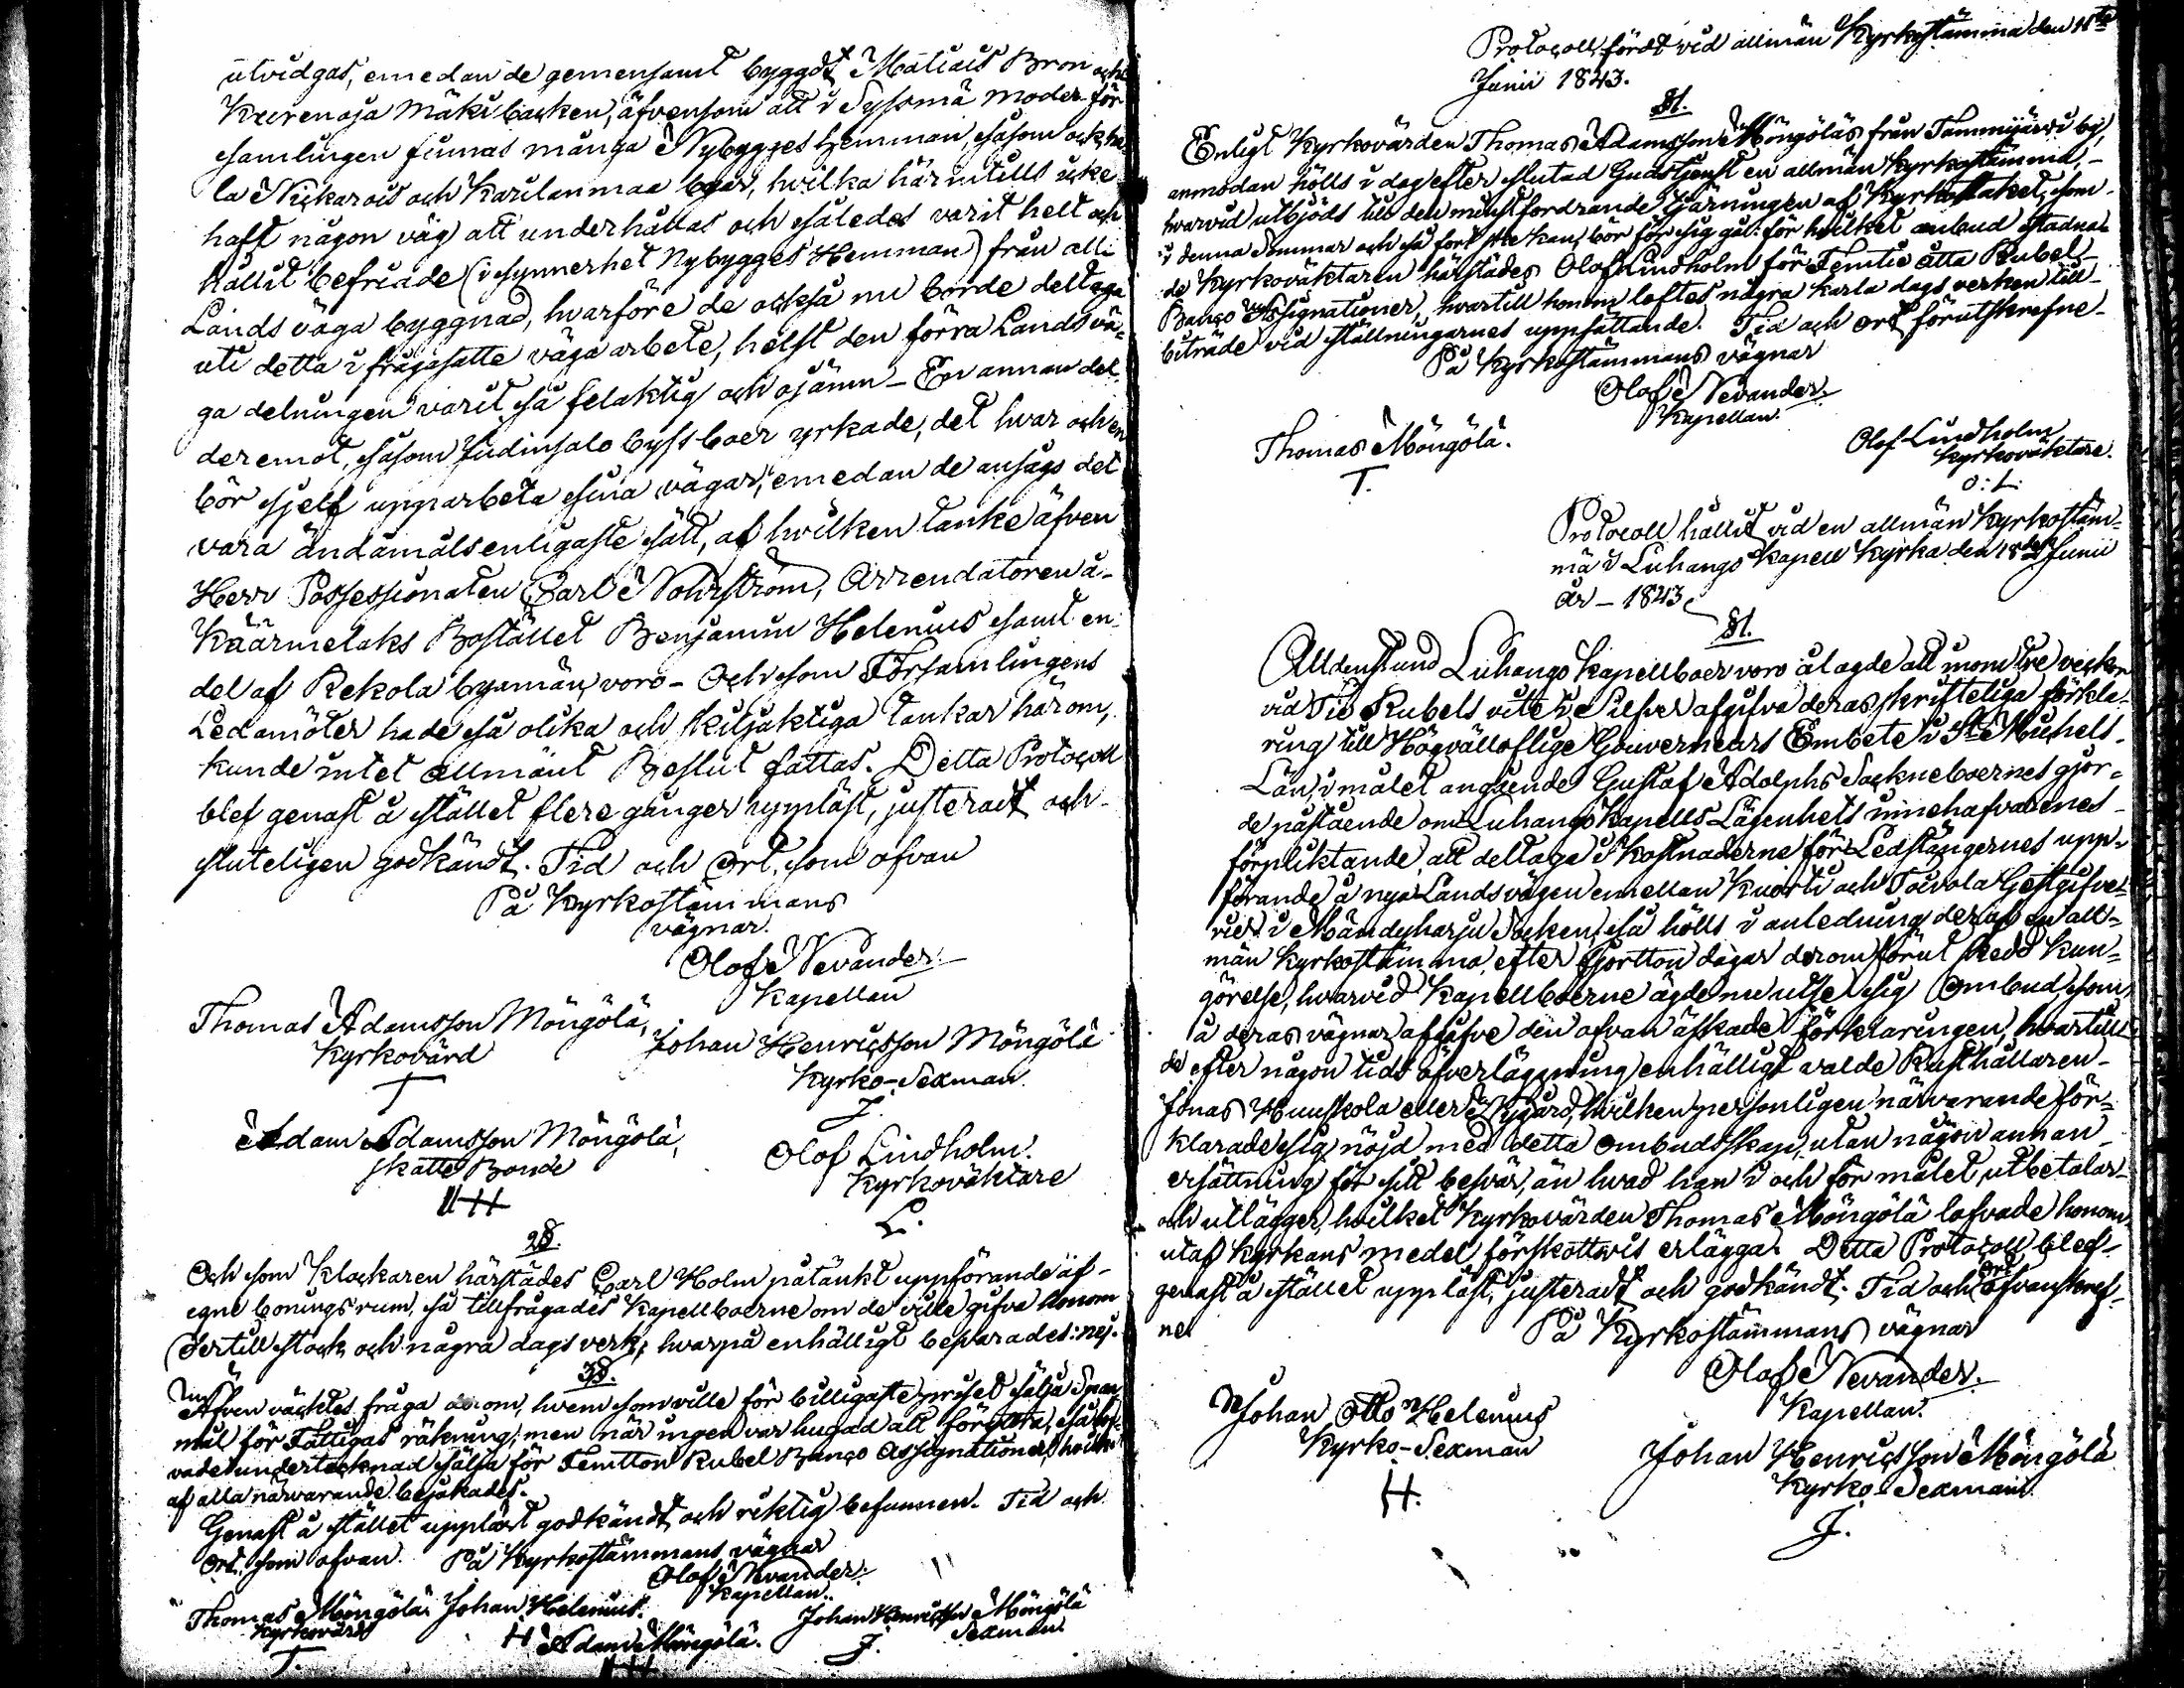 utvidgas, emedan de gemensamt byggdt Matiais Bron och
Kurenoja Mäki backen, äfvensom att i Sysmä moder för-
samlingen finnas många Nybygges hemman, såsom ock he-
la Nickarois och Karilanmaa byar, hvilka härintills icke
haft någon väg att underhållas och således varit helt och
hållit befriade (i synnerhet Nybygges Hemman) från all
Lands väga byggnad, hvarföre de också nu borde deltaga
uti detta i frågasatte väga arbete, helst den förra Lands vä-
ga delningen varit så felaktig och ojämn – En annan del
deremot, såsom Judinsalo byss boer yrkade, det hvar och en
bör sjelf upparbeta sina vägar, emedan de ansågs det
vara ändamålsenligaste sätt, af hvilken tanke äfven
Herr Possessionaten Carl Nohrström, Arrendatoren å
Käärmelaks Bostället Benjamin Helenius samt en
del af Rekola byamän, voro – Och som Församlingens
Ledamöter hade så olika och skiljaktiga tankar härom,
kunde intet allmänt Beslut fattas. Detta Protocoll
blef genast å stället flere gånger uppläst, justeradt och
sluteligen godkändt. Tid och Ort, som ofvan
På Kyrkostämmans
vägnar.
Olof Nevander.
Kapellan
Thomas Adamsson Möngölä,
Kyrkovärd
T
Johan Henricsson Möngölä
Kyrko-Sexman.
J.
Adam Adamsson Möngölä,
skatte Bonde
Olof Lindholm.
Kyrkoväktare
L.
2§.
Och som Klockaren härstädes Carl Holm påtänkt uppförande af
egne bonings rum, så tillfrågades Kapellboerne om de ville gifva honom
dertill stock och några dags verk, hvarpå enhälligt besvarades: nej.
3§.
Äfven väcktes fråga derom, hvem som ville för billigaste priset sälja Span-
mål för Fattigas räkning, men när ingen var hugad att försälja, så lof-
vade undertecknad sälja för Femtton Rubel Banco Assignationer, hvilket
af alla närvarande bejakades.
Genast å stället uppläst godkändt och riktig befunnen. Tid och
Ort som ofvan. På Kyrkostämmans vägnar
Olof Nevander.
Kapellan.
Thomas Möngölä Johan Helenius.
Kyrkovärd
T.
H
Adam Möngölä.
Johan Henricsson Möngölä
Sexman.
J.
Protocoll, fördt vid allmän Kyrkostämma den 11te
Junii 1843.
§1.
Enligt Kyrkovärden Thomas Adamsson Möngöläs från Tammijärvi by,
anmodan hölls i dag efter slutad Gudstjenst en allmän Kyrkostämma, –
hvarvid utbjöds till den minstfordrande tjärningen af Kyrkotaket, som
i denna Sommar och så fort ske kan, bör för sig gå: för hvilket anbud stadna-
de Kyrkoväktaren härstädes Olof Lindholm för Femtio åtta Rubel
Banco Assignationer, hvartill honom loftes några karla dags verken till
biträde vid ställningarnes uppsättande. Tid och ort förutskrefne
På Kyrkostämmans vägnar
Olof Nevander.
Kapellan.
Thomas Möngölä.
T.
Olof Lindholm
Kyrkoväktare.
O: L.
Protocoll hållit vid en allmän Kyrkostäm-
ma i Luhango Kapell Kyrka den 18de Junii
år – 1843
§1.
Alldenstund Luhango Kapellboer voro ålagde att inom tre veckor
vid Tio Rubels vite i Silfver afgifva deras skrifteliga förkla-
ring till Högvälloflige Gouverneurs Embete i St. Michels
Län, i målet angående Gustaf Adolphs Sockneboernes gjor-
de påstående om Luhango Kapells Lägenhets innehafvarenes
förpliktande, att deltaga i kostnaderne för Ledstängernes upp-
förande å nya Landsvägen emellan Kuorti och Toivola Gestgifve-
rier i Mändyharju Socken, så hölls i anledning deraf en all-
män Kyrkostämma, efter fjortton dagar derom förut skedd kun-
görelse, hvarvid Kapellboerne ägde nu utse sig Ombud, som
å deras vägnar afgifve den ofvan äskade förklaringen, hvartill
de efter någon tids öfverläggning enhälligt valde Rusthållaren
Jonas Hunskola eller Nygård, hvilken personligen närvarande för-
klarade sig nöjd med detta ombudsskap, utan någon annan
ersättning för sitt besvär, än hvad han i och för målet utbetalar
och utlägger, hvilket Kyrkovärden Thomas Möngölä lofvade honom
utaf Kyrkans medel förskottwis erlägga. Detta Protocoll blef
genast å stället uppläst, justeradt och godkändt. Tid och ort ofvanskref-
ne.
På Kyrkostämmans vägnar
Olof Nevander.
Kapellan.
Johan Otto Helenius
Kyrko-Sexman
H.
Johan Henricsson Möngölä
Kyrko-Sexman.
J.